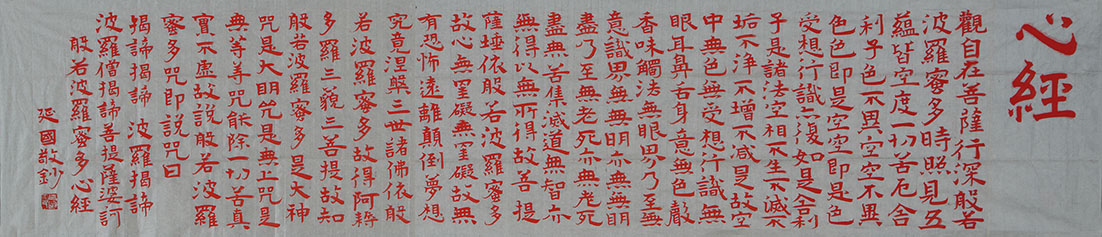 心經
觀自在菩薩行深般若
波羅蜜多時照見五
蘊皆空度一切苦厄舍
利子色不異空空不異
色色即是空空即是色
受想行識亦復如是舍利
子是諸法空相不生不滅不
垢不淨不增不減是故空
中無色無受想行識無
眼耳鼻舌身意無色聲
香味觸法無眼界乃至無
意識界無無明亦無無明
盡乃至無老死亦無老死
盡無苦集滅道無智亦
無得以無所得故菩提
薩埵依般若波羅蜜多
故心無罣礙無罣礙故無
有恐怖遠離顛倒夢想
究竟涅槃三世諸佛依般
若波羅蜜多故得阿耨
多羅三藐三菩提故知
般若波羅蜜多是大神
咒是大明咒是無上咒是
無等等咒能除一切苦真
實不虛故說般若波羅
蜜多咒即說咒曰
揭諦揭諦 波羅揭諦
波羅僧揭諦菩提薩婆訶
般若波羅蜜多心經
延國敬鈔